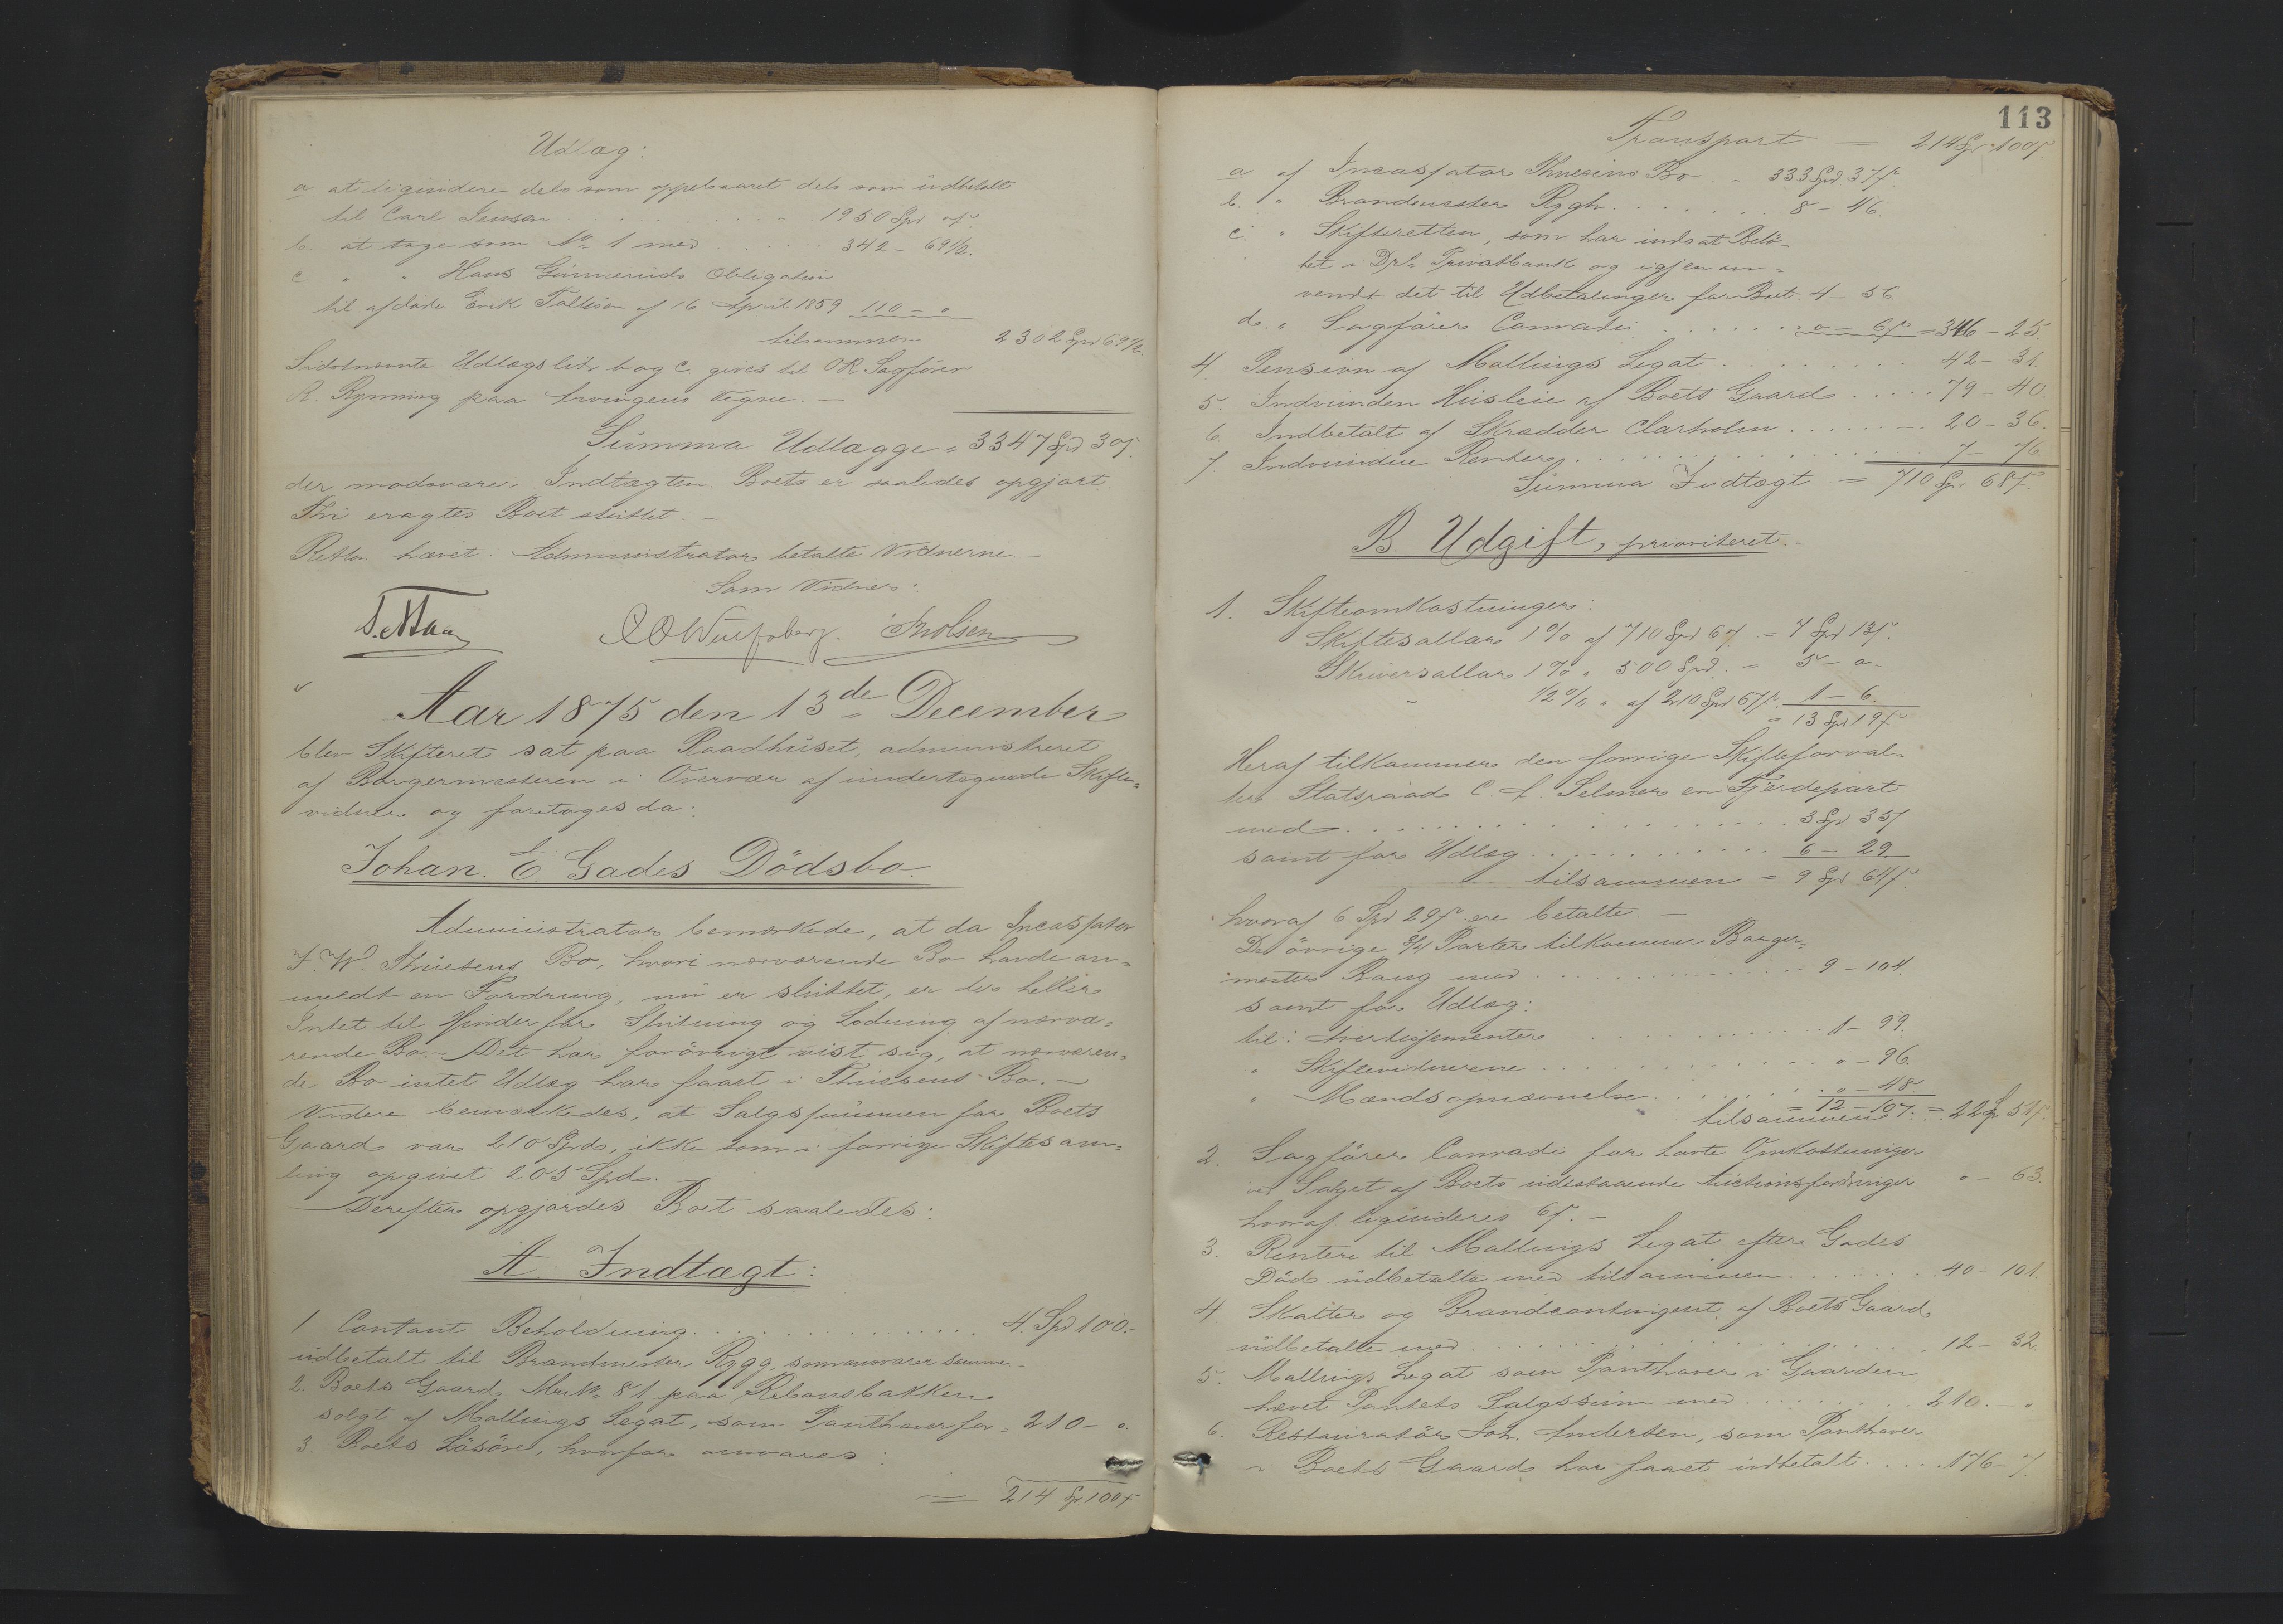 Udlæg:
a at liqvidere dels som oppebaaret dels som indbetalt
til Carl Jensen . . . . . . . . . . 1950 Spd o β.
b. at tage som No 1 med . . . . . 342 - 69 1/2.
c " " Hans Gunnerüds Obligation
til afdøde Erik Tollefsen af 16 April 1859 110 - o
tilsammen 2302 Spd 69 1/2.
Sidstnævnte Udlægslidr b og c. gives til OR Sagfører
R. Rynning paa Arvingens Vegne. -
Summa Udlægge = 3347 Spd 30 β.
der modsvarer Indtægten. Boets er saaledes opgjort.
Thi eragtes Boet sluttet. -
Retten hævet. Administrator betalte Vidnerne. -
Som Vidner:
Aar 1875 den 13de December
blev Skifteret sat paa Raadhüset, administreret
af Borgermesteren i Overvær af undertegnede Skifte-
vidner og foretoges da:
Johan. C. Gades Dödsbo.
Administrator bemærkede, at da Incassator
F. W. Thuesens Bo, hvori nærværende Bo havde an-
meldt en Fordring, nü er sluttet, er des heller
Intet til Hinder for Slutning og Lodning af nærvæ-
rende Bo. - Det har forövrigt vist sig, at nærværen-
de Bo intet Udlæg har faaet i Thuesens Bo. -
Videre bemærkedes, at Salgssummen for Boets
Gaard var 210 Spd, ikke som i forrige Skiftesam-
ling opgivet 205 Spd. -
Derefter opgjordes Boet saaledes:
A. Indtægt:
1 Contant Beholdning . . . . . . . . . . 4 Spd 100. -
udbetalt til Brandmester Rygg, som ansvarer samme -
2. Boets Gaard Mn No 81 paa Rebansbakken
solgt af Mallings Legat, som Panthaver for = 210 - o.
3. Boets Lösöre, hvorfor ansvares:
= 214 Sp. 100 β
113
Transport = 214 Spd 100 β.
a af Incassator Thuesens Bo . - 333 Spd 37 β.
b. " Brandmester Rygh . . . . . . 8 - 46.
c. " Skifteretten, som har indsat Belö-
bet i Drs Privatbank og igjen an-
vendt det til Udbetalinger for Boet. 4 - 56.
d. " Sagförer Conradi . . . . . . o - 6 β = 346 - 25.
4. Pension af Mallings Legat . . . . . . . . 42 - 31.
5. Indvunden Hüsleie af Boets Gaard . . . . . 79 - 40.
6. Indbetalt af Skrædder Clarholm . . . . . . 20 - 36.
7. Indvundne Renter . . . . . . . . . . . . 7 - 76.
Summa Indtægt = 710 Sp. 68 β.
B. Udgift, prioriteret. -
1. Skifteomkostninger:
Skiftesallar 1 % af 710 Spd 67. = 7 Spd 13 β.
Skriversallar 1 % " 500 Spd. = 5 - o.
" 1/2 % " af 210 Spd 67 β. 1 - 6.
= 13 Spd 19 β
Heraf tilkommer den forrige Skifteforval-
ter Statsraad C. A. Selmer en Fjerdepart
med . . . . . . . . . . . . . . . . 3 Spd 35 β
samt for Udlæg . . . . . . . . . . . 6 - 29.
tilsammen = 9 Spd 64 β.
hvoraf 6 Spd 29 β. ere betalte. -
De övrige 3/4 Parter tilkommer Borger-
mester Baug med . . . . . . . . . . 9 - 104.
samt for Udlæg:
til: Avertissementer . . . . . . . . . 1 - 99.
" Skiftevidnerne . . . . . . . . . . o - 96.
" Mændsopnævnelse . . . . . . . o - 48.
tilsammen = 12 - 107. = 22 Sp 51 β.
2. Sagförer Conradi for havte Omkostninger
ved Salget af Boets udestaaende Auctionsfordringer o - 63.
hvoraf liqvideres 6 β. -
3. Renter til Mallings Legat efter Gades
Död udbetalte med tilsammen . . . . . . 40 - 101.
4. Skatter og Brandcontingent af Boets Gaard
udbetalte med . . . . . . . . . . . . . 12 - 32.
5. Mallings Legat som Panthaver i Gaarden
hævet Pantets Salgssum med . . . . . . . . 210. - o.
6. Restauratör Joh. Andersen, som Panthaver
i Boets Gaard har faaet udbetalt . . . . 176 - 7.